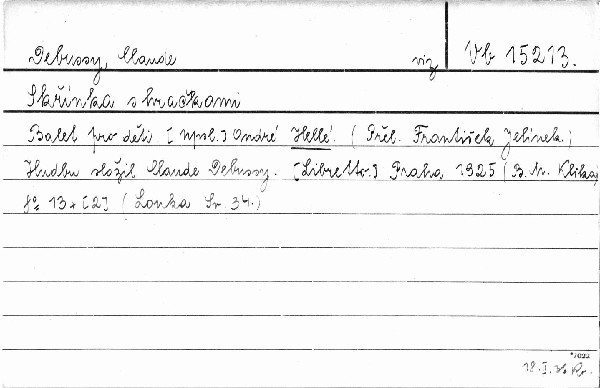 Debussy, Claude viz Vb 15213.
Skřínka s hračkami
Balet pro děti [napsal] André Hellé. (Přel. František Jelínek.)
Hudbu složil Claude Debussy. [Libretto.] Praha 1925 (B. M. Klika)
8° 13 + [2] (Lonka Sv 34.)
*7022
18. I. 36